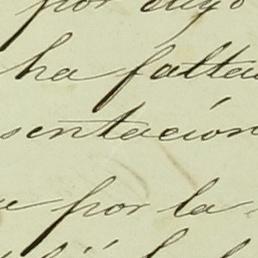 por cuyo
ha falta
sentación
por la